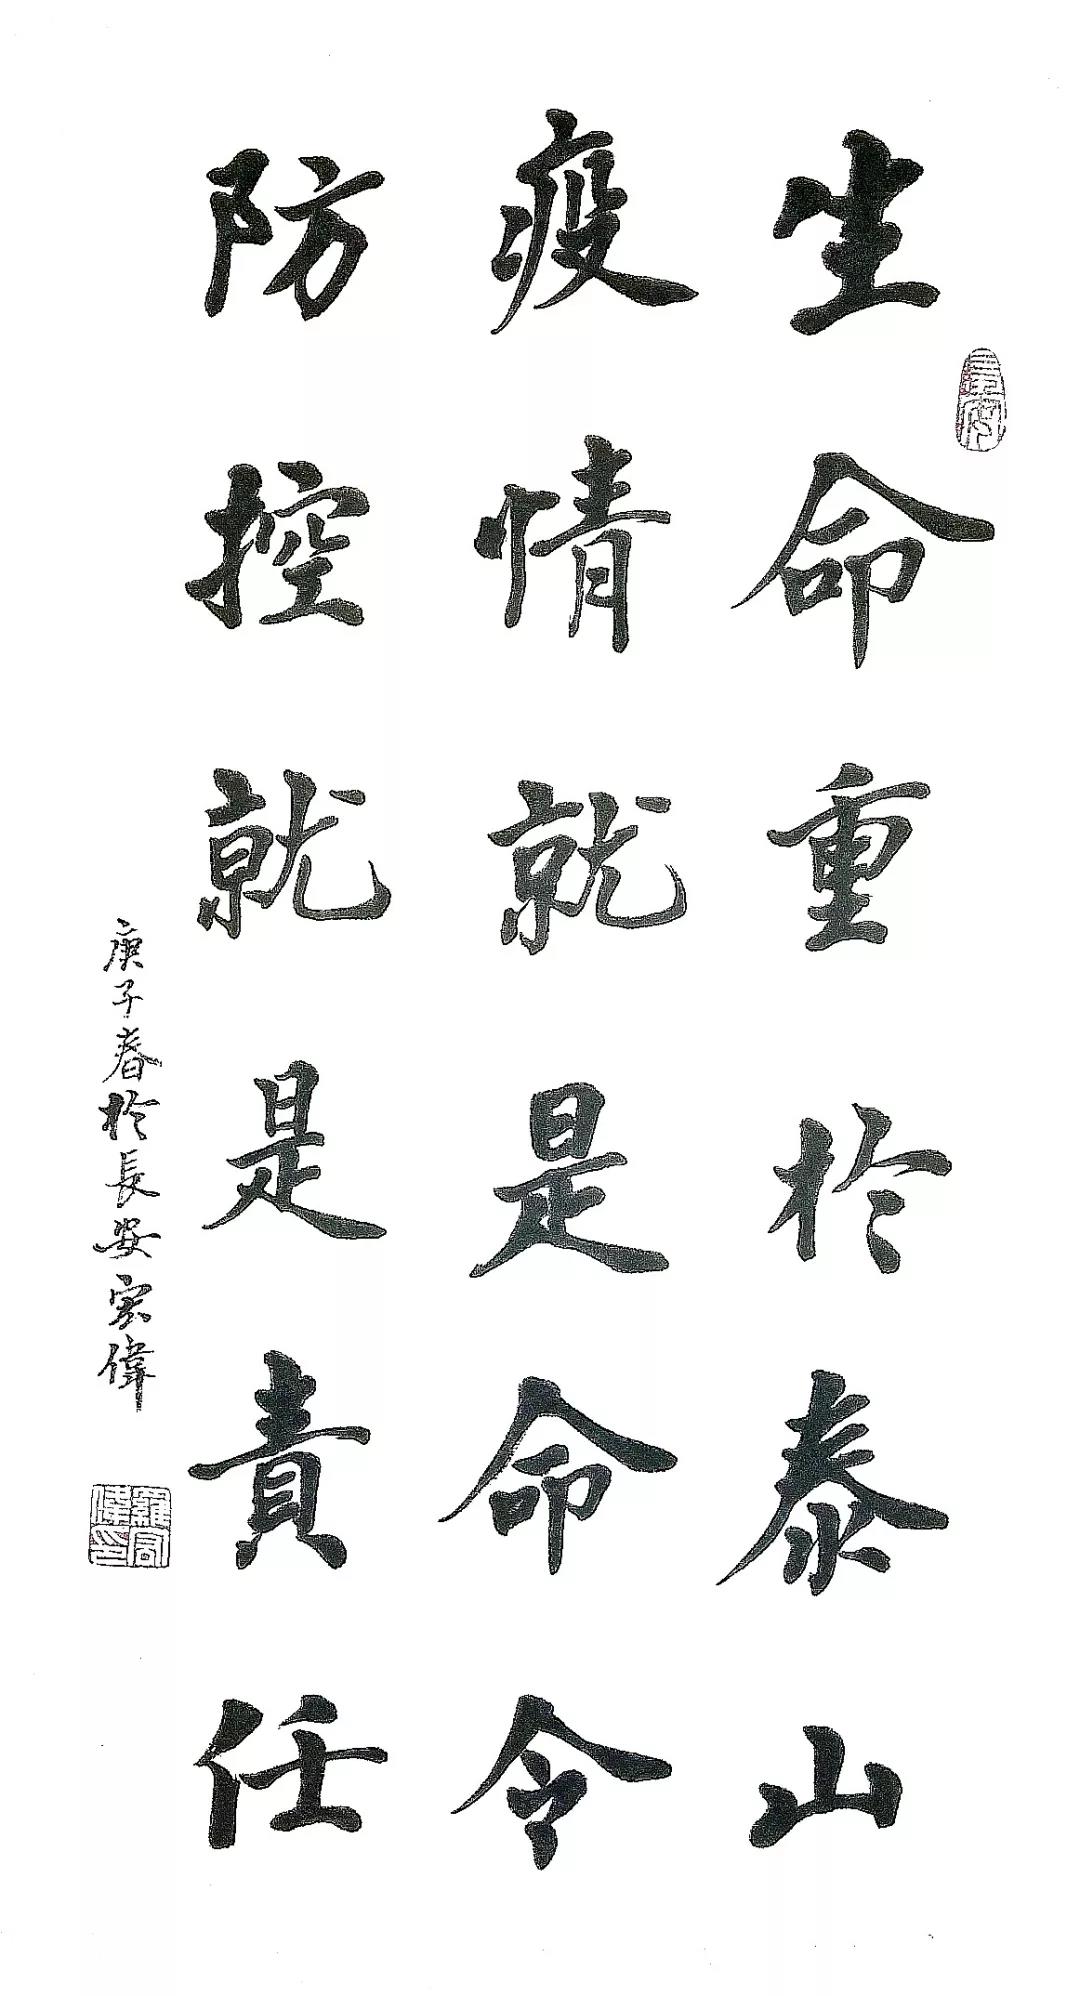 生命重於泰山
疫情就是命令
防控就是責任
庚子春於長安宏偉
羅宏偉印